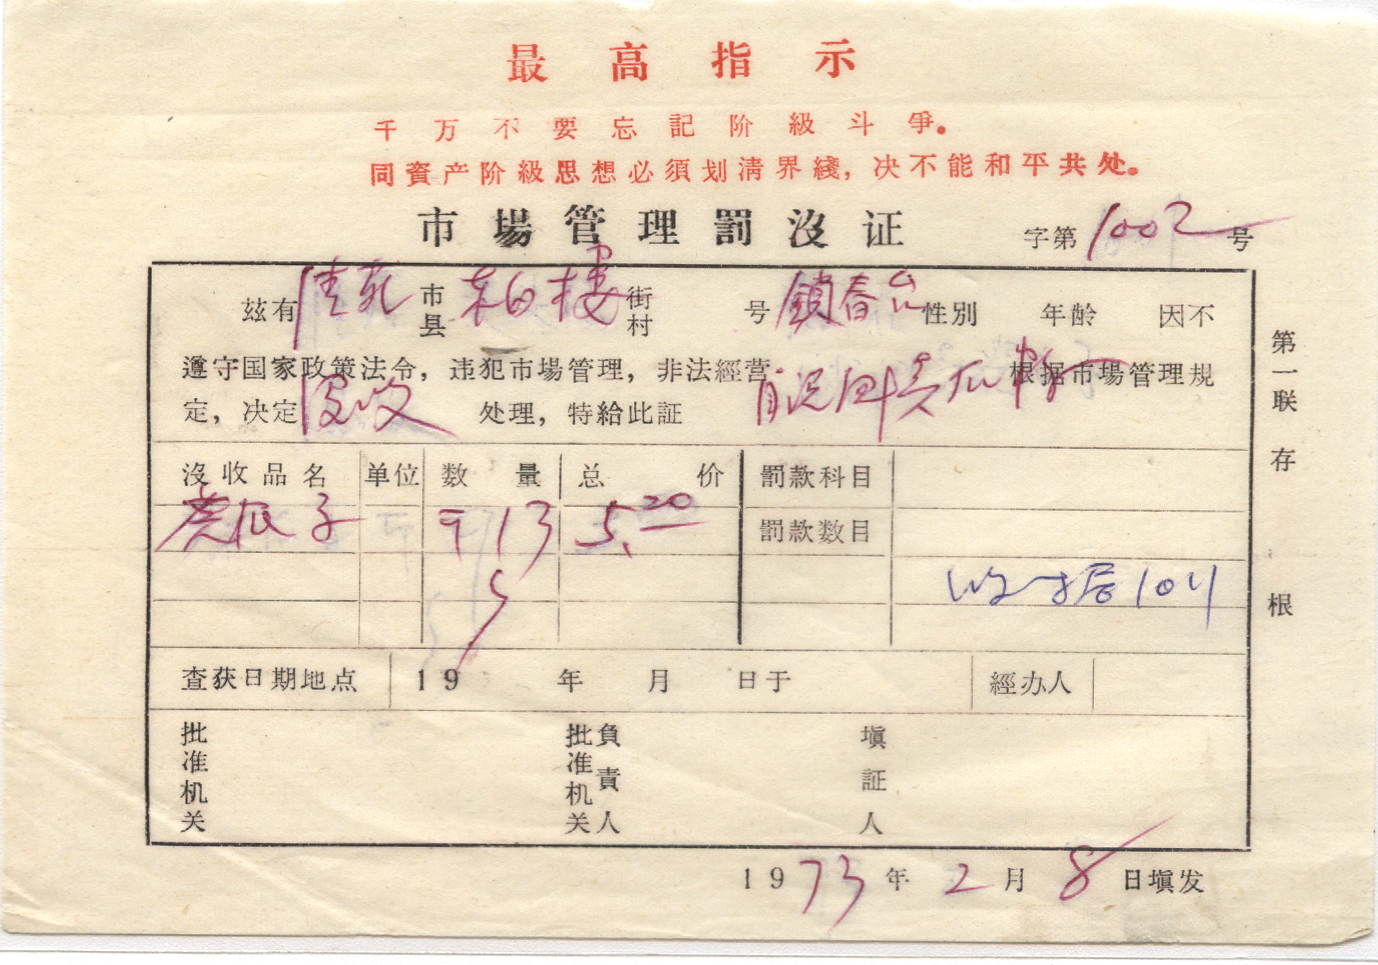 最高指示
千万不要忘記阶級斗爭。
同資产阶級思想必須划清界綫，决不能和平共处。
市場管理罰沒证
字第1002号
兹有 市县 柏楼 街村 号 鎖春台 性別 年龄 因不
遵守国家政策法令，违犯市場管理，非法經营 根据市場管理規
定，决定没收处理，特給此証
沒收品名 单位 数量 总价 罰款科目
子 13 5.20 罰款数目
收据
查获日期地点 19 年 月 日于 經办人
批准机关 批准机关負責人 塡証人
1973年2月8日塡发
第一联 存根